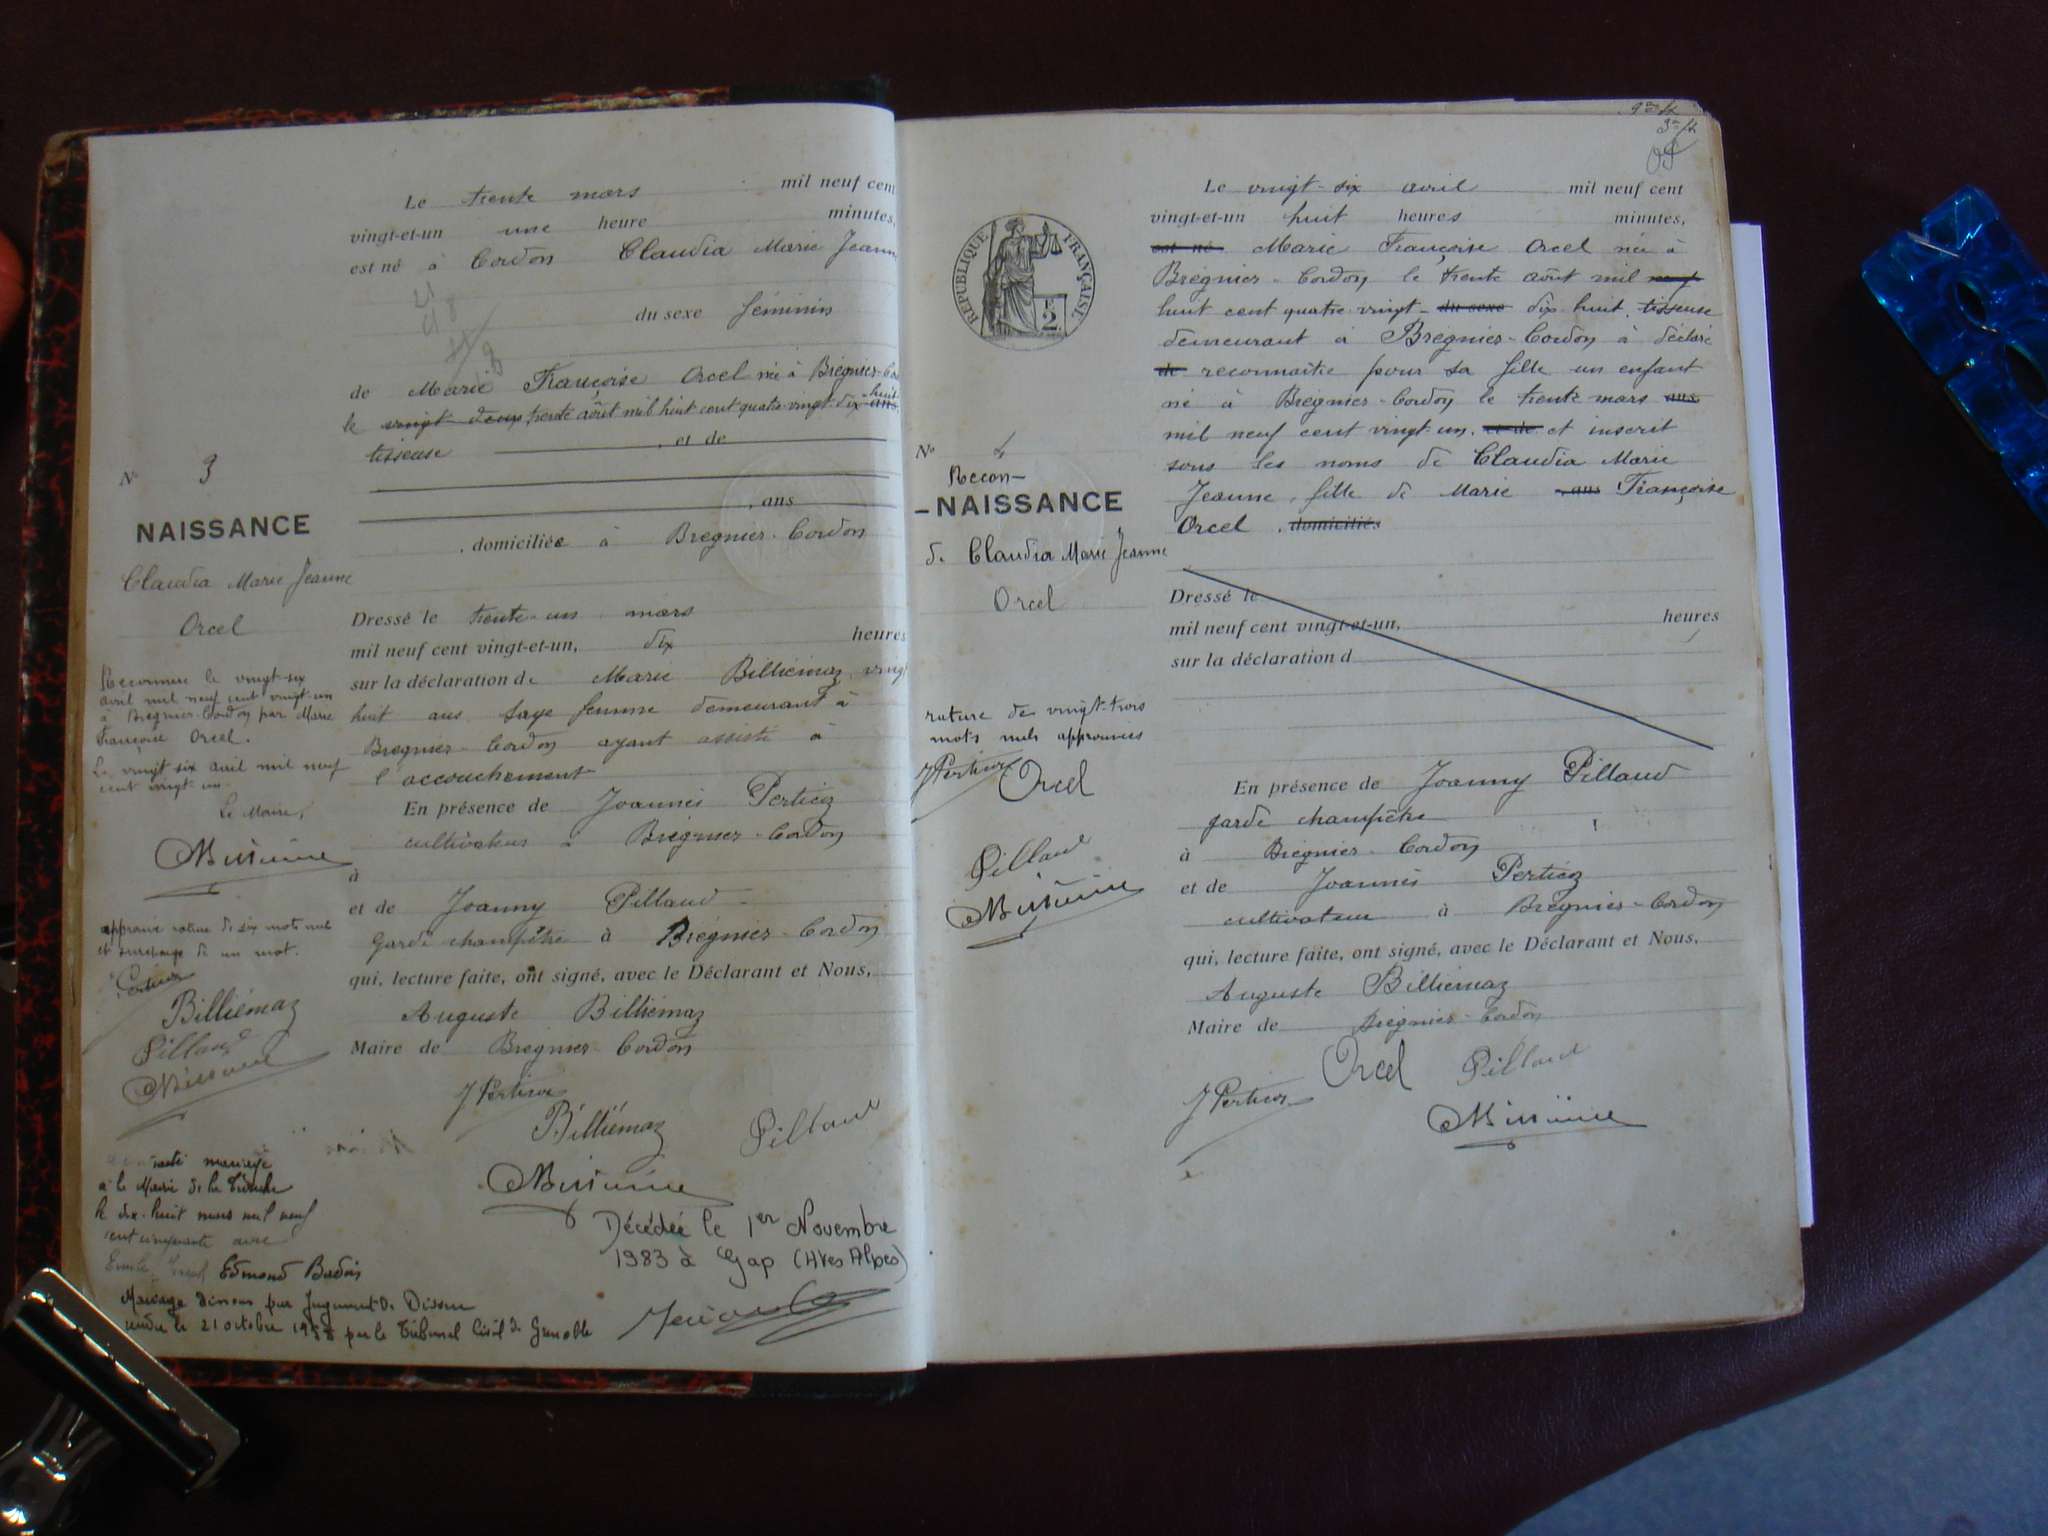 Le trente mars mil neuf cent
vingt-et-un une heure minutes,
est né à Cordon Claudia Marie Jeann
du sexe féminin
de Marie Françoise Orcel née à Brégnier-Cor
huit
le vingt deux trente août mil huit cent quatre-vingt-dix ans
tisseuse , et de
, ans
, domiciliée à Brégnier-Cordon
N° 3
NAISSANCE
Claudia Marie Jeanne
Orcel
Reconnue le vingt-six
avril mil neuf cent vingt-un
à Brégnier-Cordon par Marie
Françoise Orcel.
Le vingt six avril mil neuf
cent vingt-un.
Le Maire,
approuvé rature de six mots nuls
et surcharge de un mot.
Billiémaz
Pillaud
Dressé le trente-un mars
mil neuf cent vingt-et-un, dix heures
sur la déclaration de Marie Billiémaz, vingt
huit ans sage femme demeurant à
Brégnier-Cordon ayant assisté à
l'accouchement
En présence de Joannès Perticoz
cultivateur à Brégnier-Cordon
à
et de Joanny Pillaud
garde champêtre à Brégnier-Cordon
qui, lecture faite, ont signé, avec le Déclarant et Nous,
Auguste Billiémaz
Maire de Brégnier-Cordon
J Perticoz
Billiémaz Pillaud
mariage
à la Mairie de la Tronche
le dix-huit mars mil neuf
cent cinquante avec
Edmond Badois
Mariage dissous par Jugement de Divorce
rendu le 21 octobre par le Tribunal Civil de Grenoble
Décédée le 1er Novembre
1983 à Gap (Htes Alpes)
REPUBLIQUE FRANÇAISE
2
N° 4
Recon-
-NAISSANCE
de Claudia Marie Jeanne
Orcel
rature de vingt-trois
mots nuls approuvées
J Perticoz Orcel
Pillaud
Le vingt-six avril mil neuf cent
vingt-et-un huit heures minutes,
est né Marie Françoise Orcel née à
Brégnier-Cordon le trente août mil neuf
huit cent quatre-vingt- du sexe dix-huit, tisseuse
demeurant à Brégnier-Cordon à déclaré
de reconnaitre pour sa fille un enfant
né à Brégnier-Cordon le trente mars ans
mil neuf cent vingt-un. et de et inscrit
sous les noms de Claudia Marie
Jeanne, fille de Marie , ans Françoise
Orcel , domiciliés
Dressé le
mil neuf cent vingt-et-un, heures
sur la déclaration d
En présence de Joanny Pillaud
garde champêtre
à Brégnier-Cordon
et de Joannès Perticoz
cultivateur à Brégnier-Cordon
qui, lecture faite, ont signé, avec le Déclarant et Nous,
Auguste Billiémaz
Maire de Brégnier-Cordon
J Perticoz Orcel Pillaud